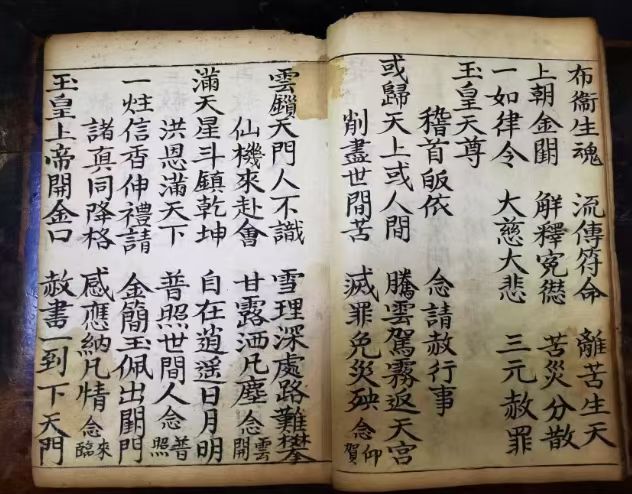 布衛生魂　流傳符命　離苦生天
上朝金闕　解釋冤愆　苦災分散
一如律令　大慈大悲　三元赦罪
玉皇天尊
稽首皈依　念請赦行事
或歸天上或人間　騰雲駕霧返天宮
削盡世間苦　滅罪免災殃　念仰賀
雲鎖天門人不識　雪理深處路難攀
仙機來赴會　甘露洒凡塵　念雲開
滿天星斗鎮乾坤　自在逍遥日月明
洪恩滿天下　普照世間人　念普照
一炷信香伸禮請　金簡玉佩出閨門
諸真同降格　感應納凡情　念來臨
玉皇上帝開金口　赦書一到下天門